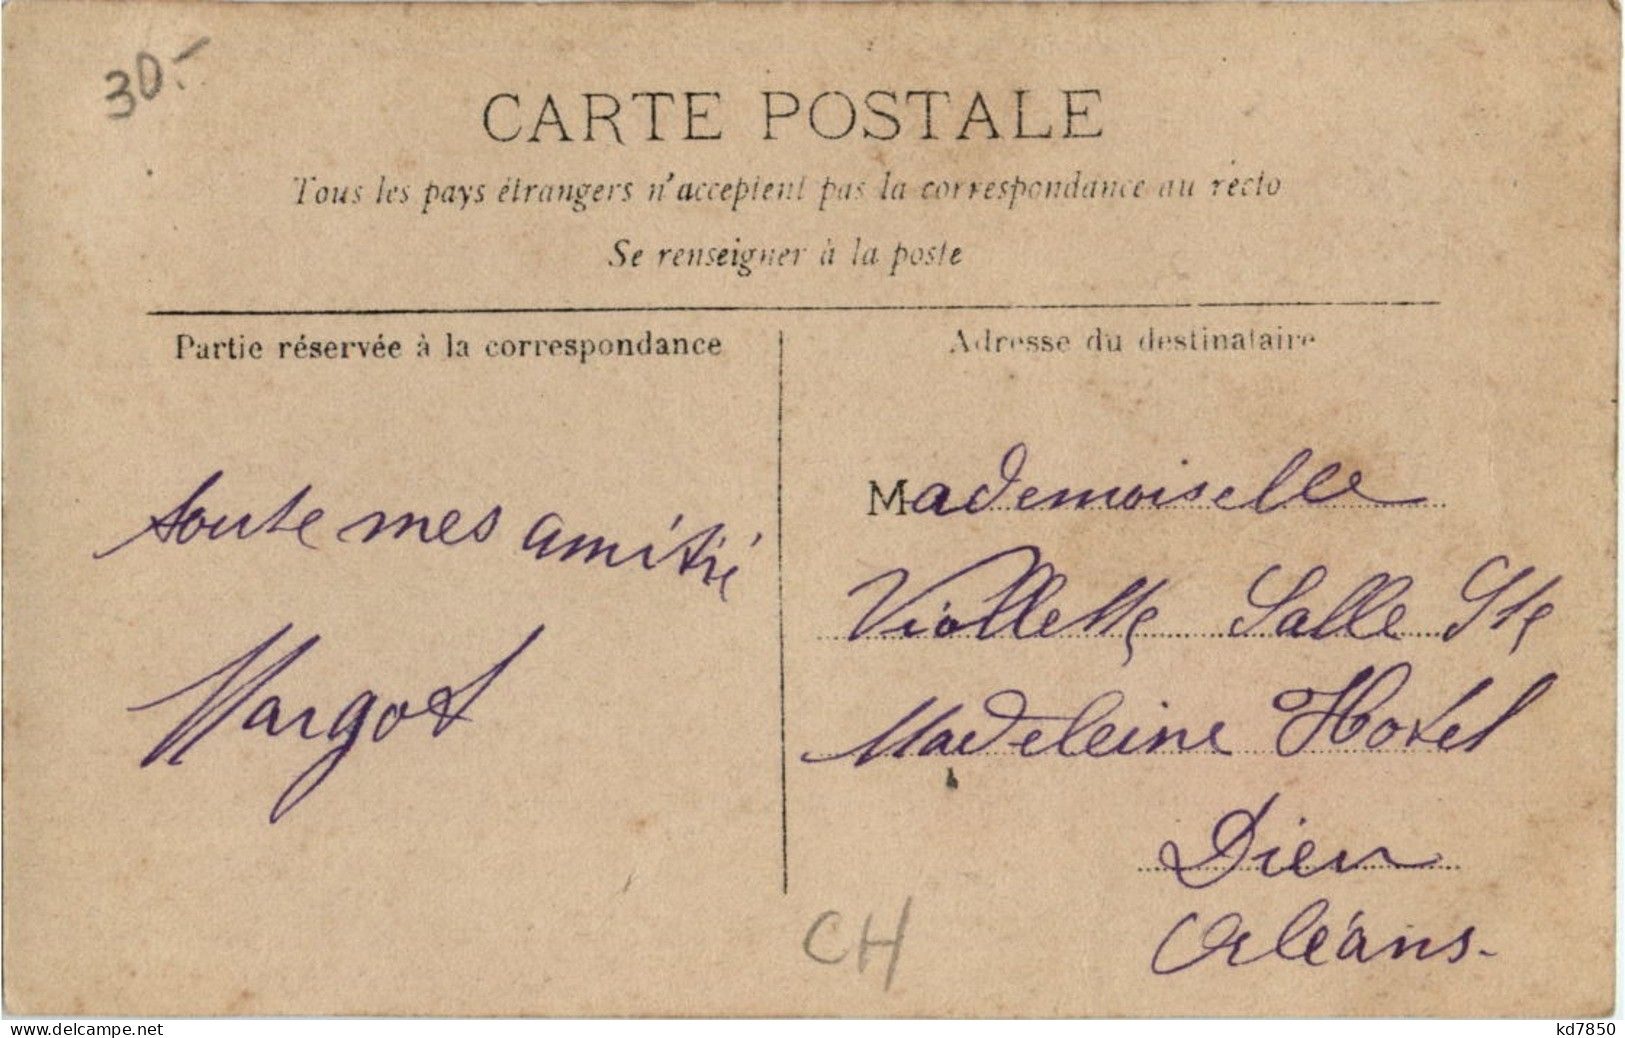 30.-
CARTE POSTALE
Tous les pays étrangers n'acceptent pas la correspondance au recto
Se renseigner à la poste
Partie réservée à la correspondance
Adresse du destinataire
toute mes amitié
Margot
Mademoiselle
Viollette Salle Ste
Madeleine Hotel
Dieu
Orléans.
CH
www.delcampe.net
kd7850